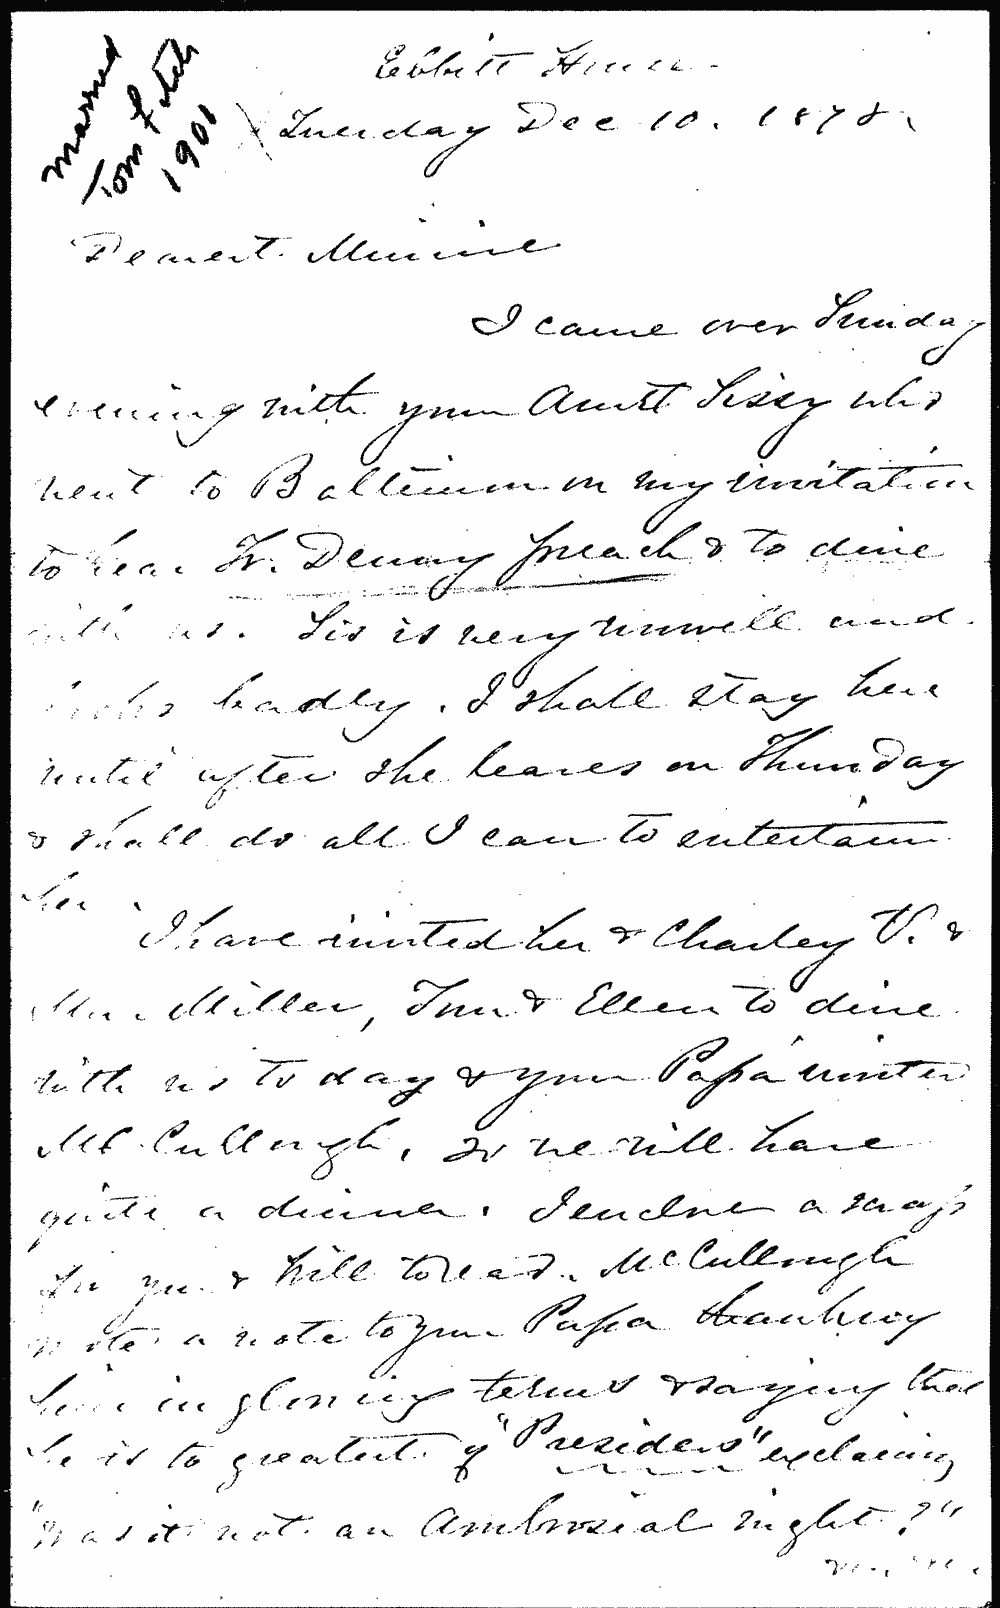 Married
Tom Fitch
1901
Ebbitt House.
Tuesday Dec 10. 1878.
Dearest Minnie
I came over Sunday
evening with your Aunt Sissy who
went to Baltimore on my invitation
to hear Fr. Denny preach & to dine
with us. Sis is very unwell and
looks badly. I shall stay here
until after she leaves on Thursday
& shall do all I can to entertain
her.
I have invited her & Charley V. &
Mrs. Miller, Tom & Ellen to dine
with us to day & your Papa invited
McCullough, so we will have
quite a dinner. I enclose a scrap
for you & Will to read. McCullough
wrote a note to your Papa thanking
him in glowing terms & saying that
he is to greatest of "Presiders" exclaiming
"Was it not an Ambrosial night?"